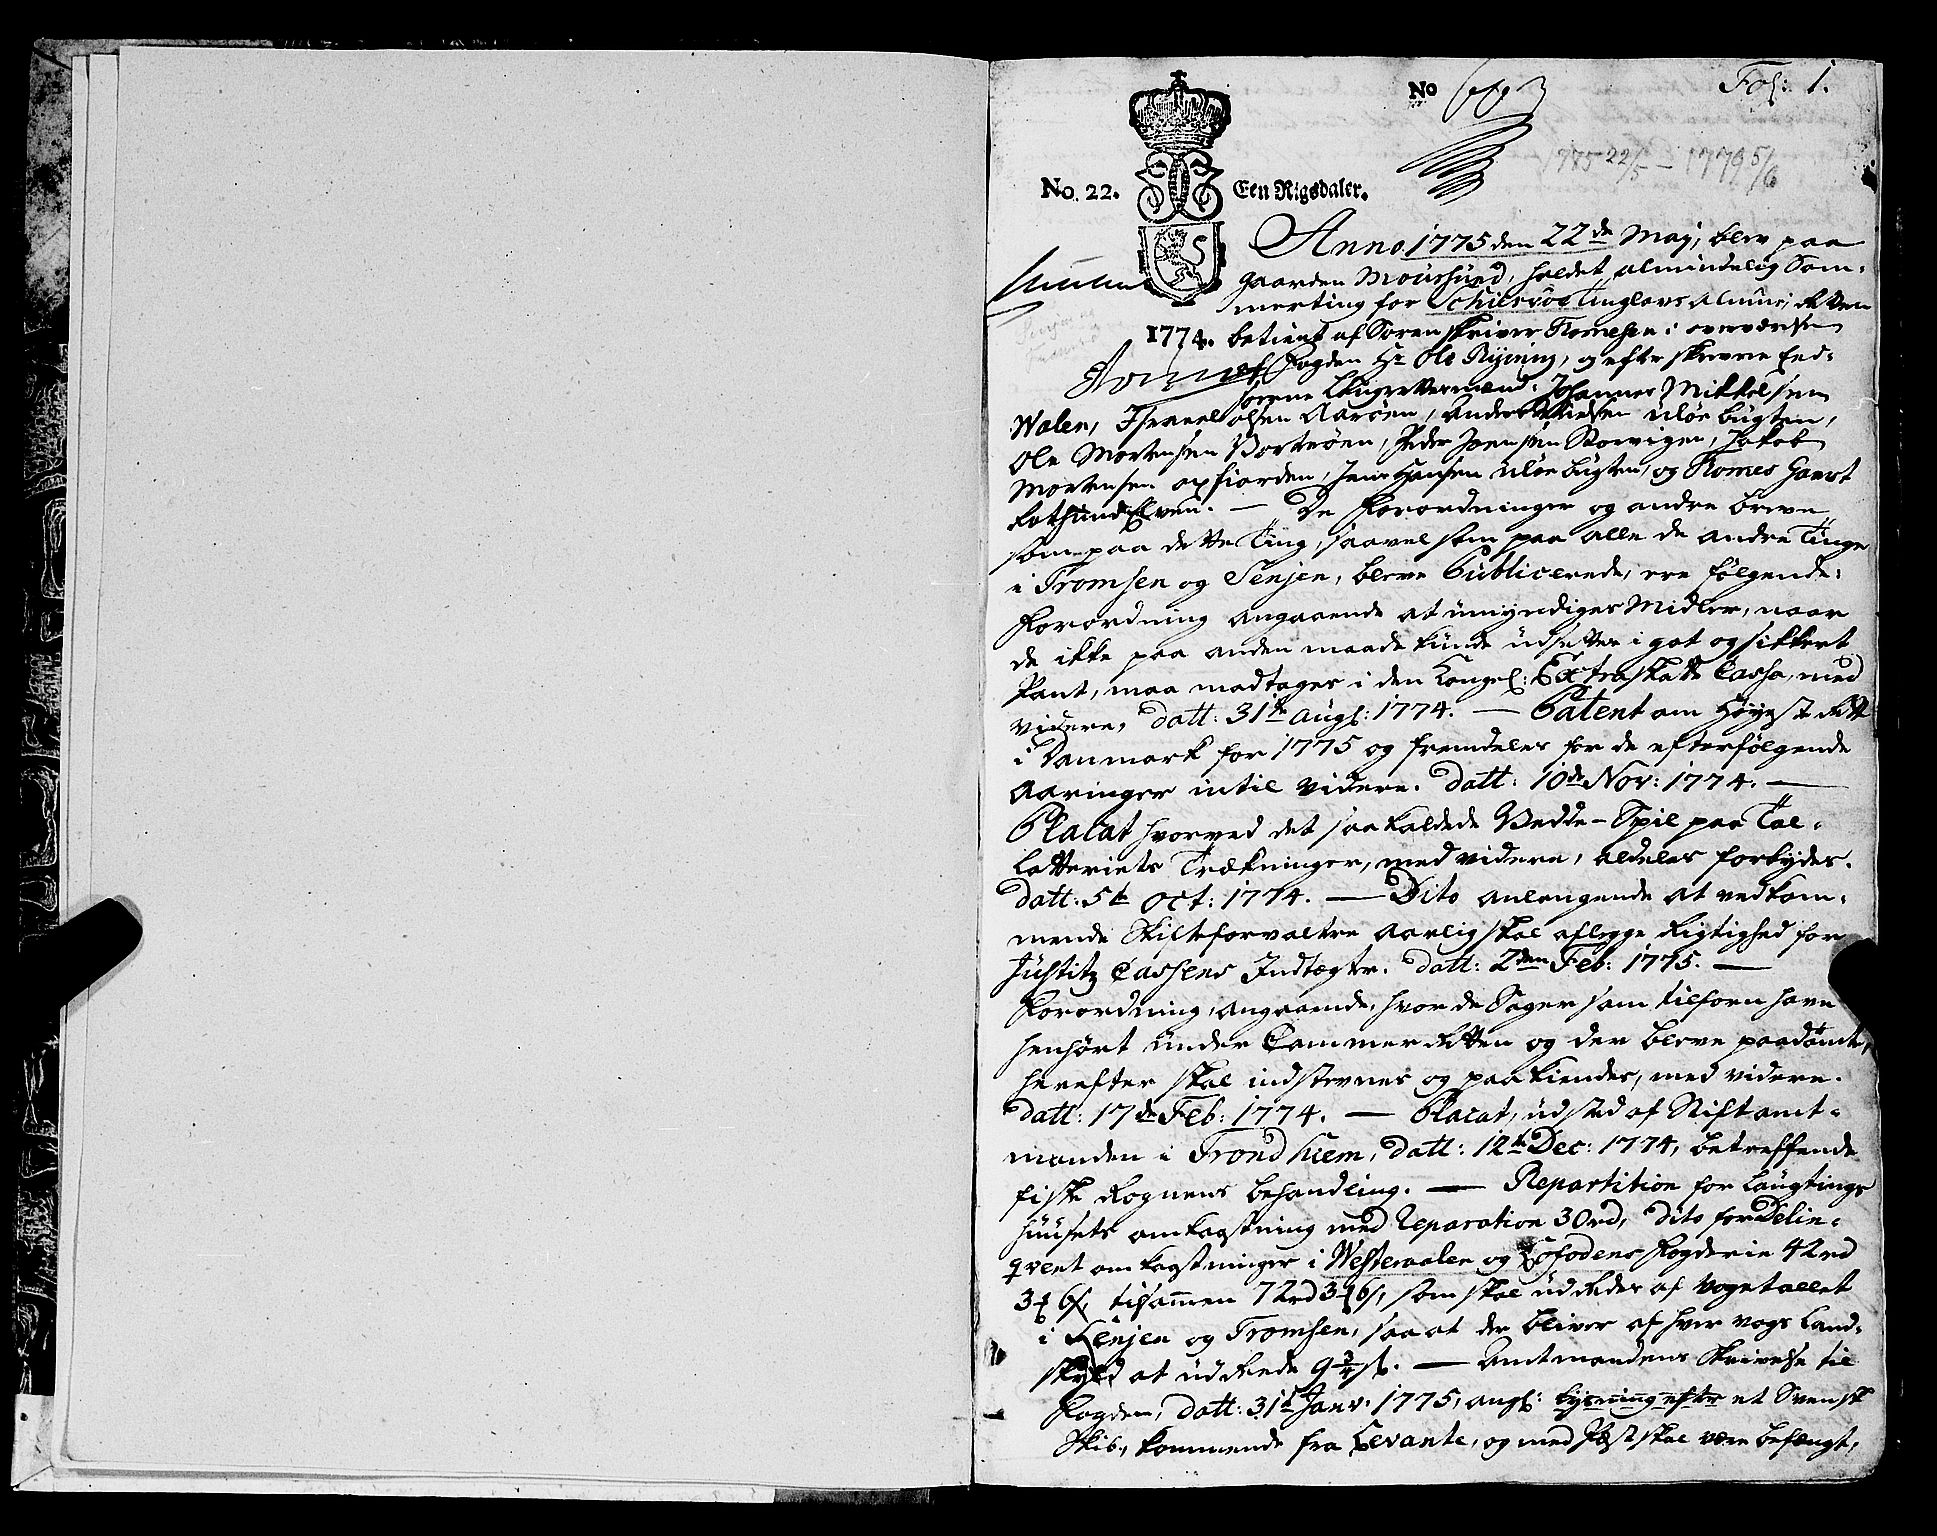 No 663
Fol: 1.
1775 22/5 — 1776 5/6
No. 22. Een Rigsdaler.
Anno 1775 den 22de Maj, blev paa
gaarden Moursund, holdet almindelig Som-
merting for Schiervøe Tinglavs Almue, Retten
1774. betient af Sorenskriver : overværelse
Fogden Hr Ole Rÿning, og efterskrevne Eed-
sorne Laugrettesmænd: Johannes Mikkelsen
Walen, Israel Olsen Aarøen, Anders Nielsen Uløebugten,
Ole Mortensen Vortøen, Peder Joensen Storvigen, Jakob
Mortensen Oxfiorden, Jens Hansen Uløebugten, og Thomes
Rotsundelven. — De Forordninger og andre breve
som paa dette Ting, saavelsom paa alle de andre Tinge
i Tromsen og Senjen, bleve Publicerede, ere følgende:
Forordning angaaende at umyndiges Midler, naar
de ikke paa anden maade kunde udsættes i got og sikkert
Pant, maa modtages i den Kongel: Extraskatte Cassa, med
videre, datt: 31te Augs: 1774. — Patent om Høyeste Rett
i Danmark for 1775 og fremdeles for de efterfølgende
Aaringer intil videre. datt: 10de Nov: 1774. —
Placat hvorved det saakaldede Vedde-Spil paa Tal-
Lotteriets Trækninger, med videre, aldeles forbydes.
datt: 5te Oct: 1774. — Dito anlangende at vedkom-
mende Skifteforvaltre Aarlig skal aflegge Rigtighed for
Justitz Cassens Indtægter. datt: 2den Feb: 1775. —
Forordning, angaaende, hvor de Sager som tilforn have
henhørt under Cammer Retten og der bleve paadømte,
herefter skal indstevnes og paakiendes, med videre.
datt: 17de Feb: 1774. — Placat, udsted af Stiftamt-
manden i Trondhiem, datt: 12te Dec: 1774, betreffende
fiske Rognens behandling. — Repartition for Laugtings
huusets omkostning med Reparation 30rd, Dito for Delin-
qvent omkostninger i Westeraalen og Lofodens Fogderie 42rd
3 6s, tilsammen 72rd 3 6s, som skal udredes af Vogetallet
i Senjen og Tromsen, saa at der bliver af hver vogs Land-
skyld at udrede 9 3/4 s. — Amtmandens Skrivelse til
Fogden, datt: 31te Janv: 1775, ang: lysning efter et Svensk
Skib, kommende fra Levante, og med Pæst skal være befængt,